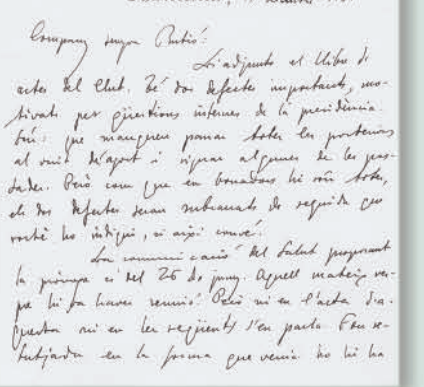 Company senyor Butió:
Li adjunto el llibre de
actes del Club. Té dos defectes importants, mo-
tivats per qüestions internes de la presidència.
Són: que manquen passar totes les posteriors
al mes d'agost i signar algunes de les pas-
sades. Però com que en borradors hi són totes,
els dos defectes seran subsanats de seguida que
vostè ho indiqui, si així convé.
La comunicació del Salut proposant
la pròrroga és del 26 de juny. Aquell mateix ves-
pre hi va haver reunió. Però ni en l'acta d'a-
questa ni en les següents s'en parla
en la forma que venia no hi ha